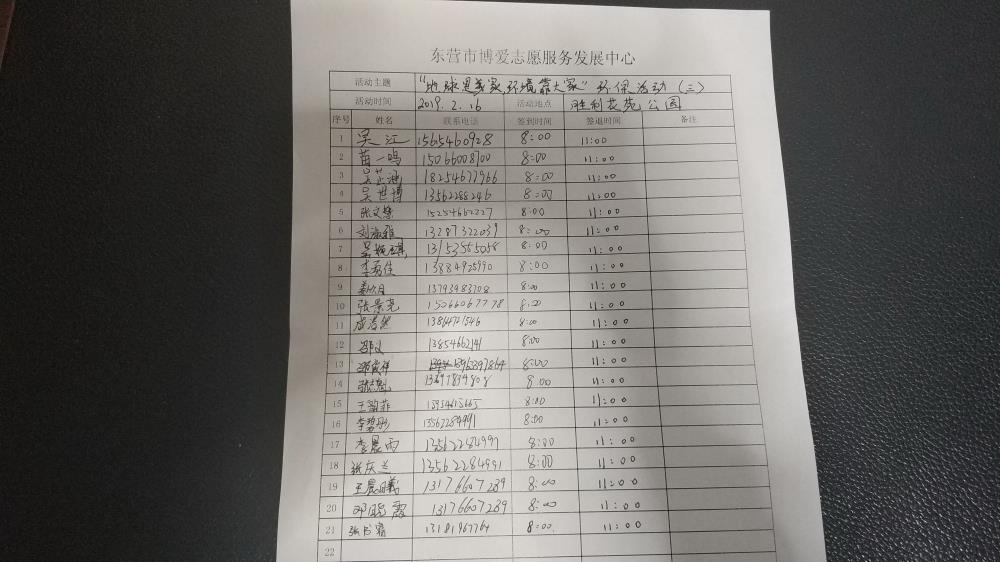 东营市博爱志愿服务发展中心
活动主题 "地球是我家,环境靠大家"环保活动(三)
活动时间 2019.2.16 活动地点 胜利花苑公园
序号 姓名 联系电话 签到时间 签退时间 备注
1 吴江 1565460928 8:00 11:00
2 苗一鸣 15066008700 8:00 11:00
3 吴芷涵 18254677966 8:00 11:00
4 吴世博 13562288246 8:00 11:00
5 张文 15254662227 8:00 11:00
6 刘淑雅 13287322039 8:00 11:00
7 13153555058 8:00 11:00
8 李秀佳 13884925990 8:00 11:00
9 13793983708 8:00 11:00
10 张景尧 15066067778 8:00 11:00
11 8:00 11:00
12 邵义 13854662141 8:00 11:00
13 8:00 11:00
14 8:00 11:00
15 王韵菲 8:00 11:00
16 李碧彤 13562284991 8:00 11:00
17 李晨雨 13562284991 8:00 11:00
18 张庆兰 13562284991 8:00 11:00
19 王晨曦 13176607239 8:00 11:00
20 邓晓霞 13176607239 8:00 11:00
21 张书霖 13181967764 8:00 11:00
22